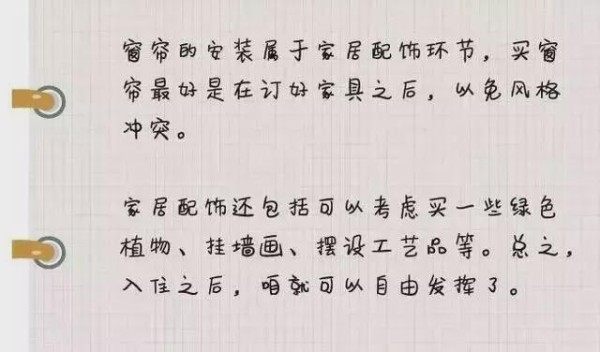 窗帘的安装属于家居配饰环节，买窗
帘最好是在订好家具之后，以免风格
冲突。
家居配饰还包括可以考虑买一些绿色
植物、挂墙画、摆设工艺品等。总之，
入住之后，咱就可以自由发挥了。